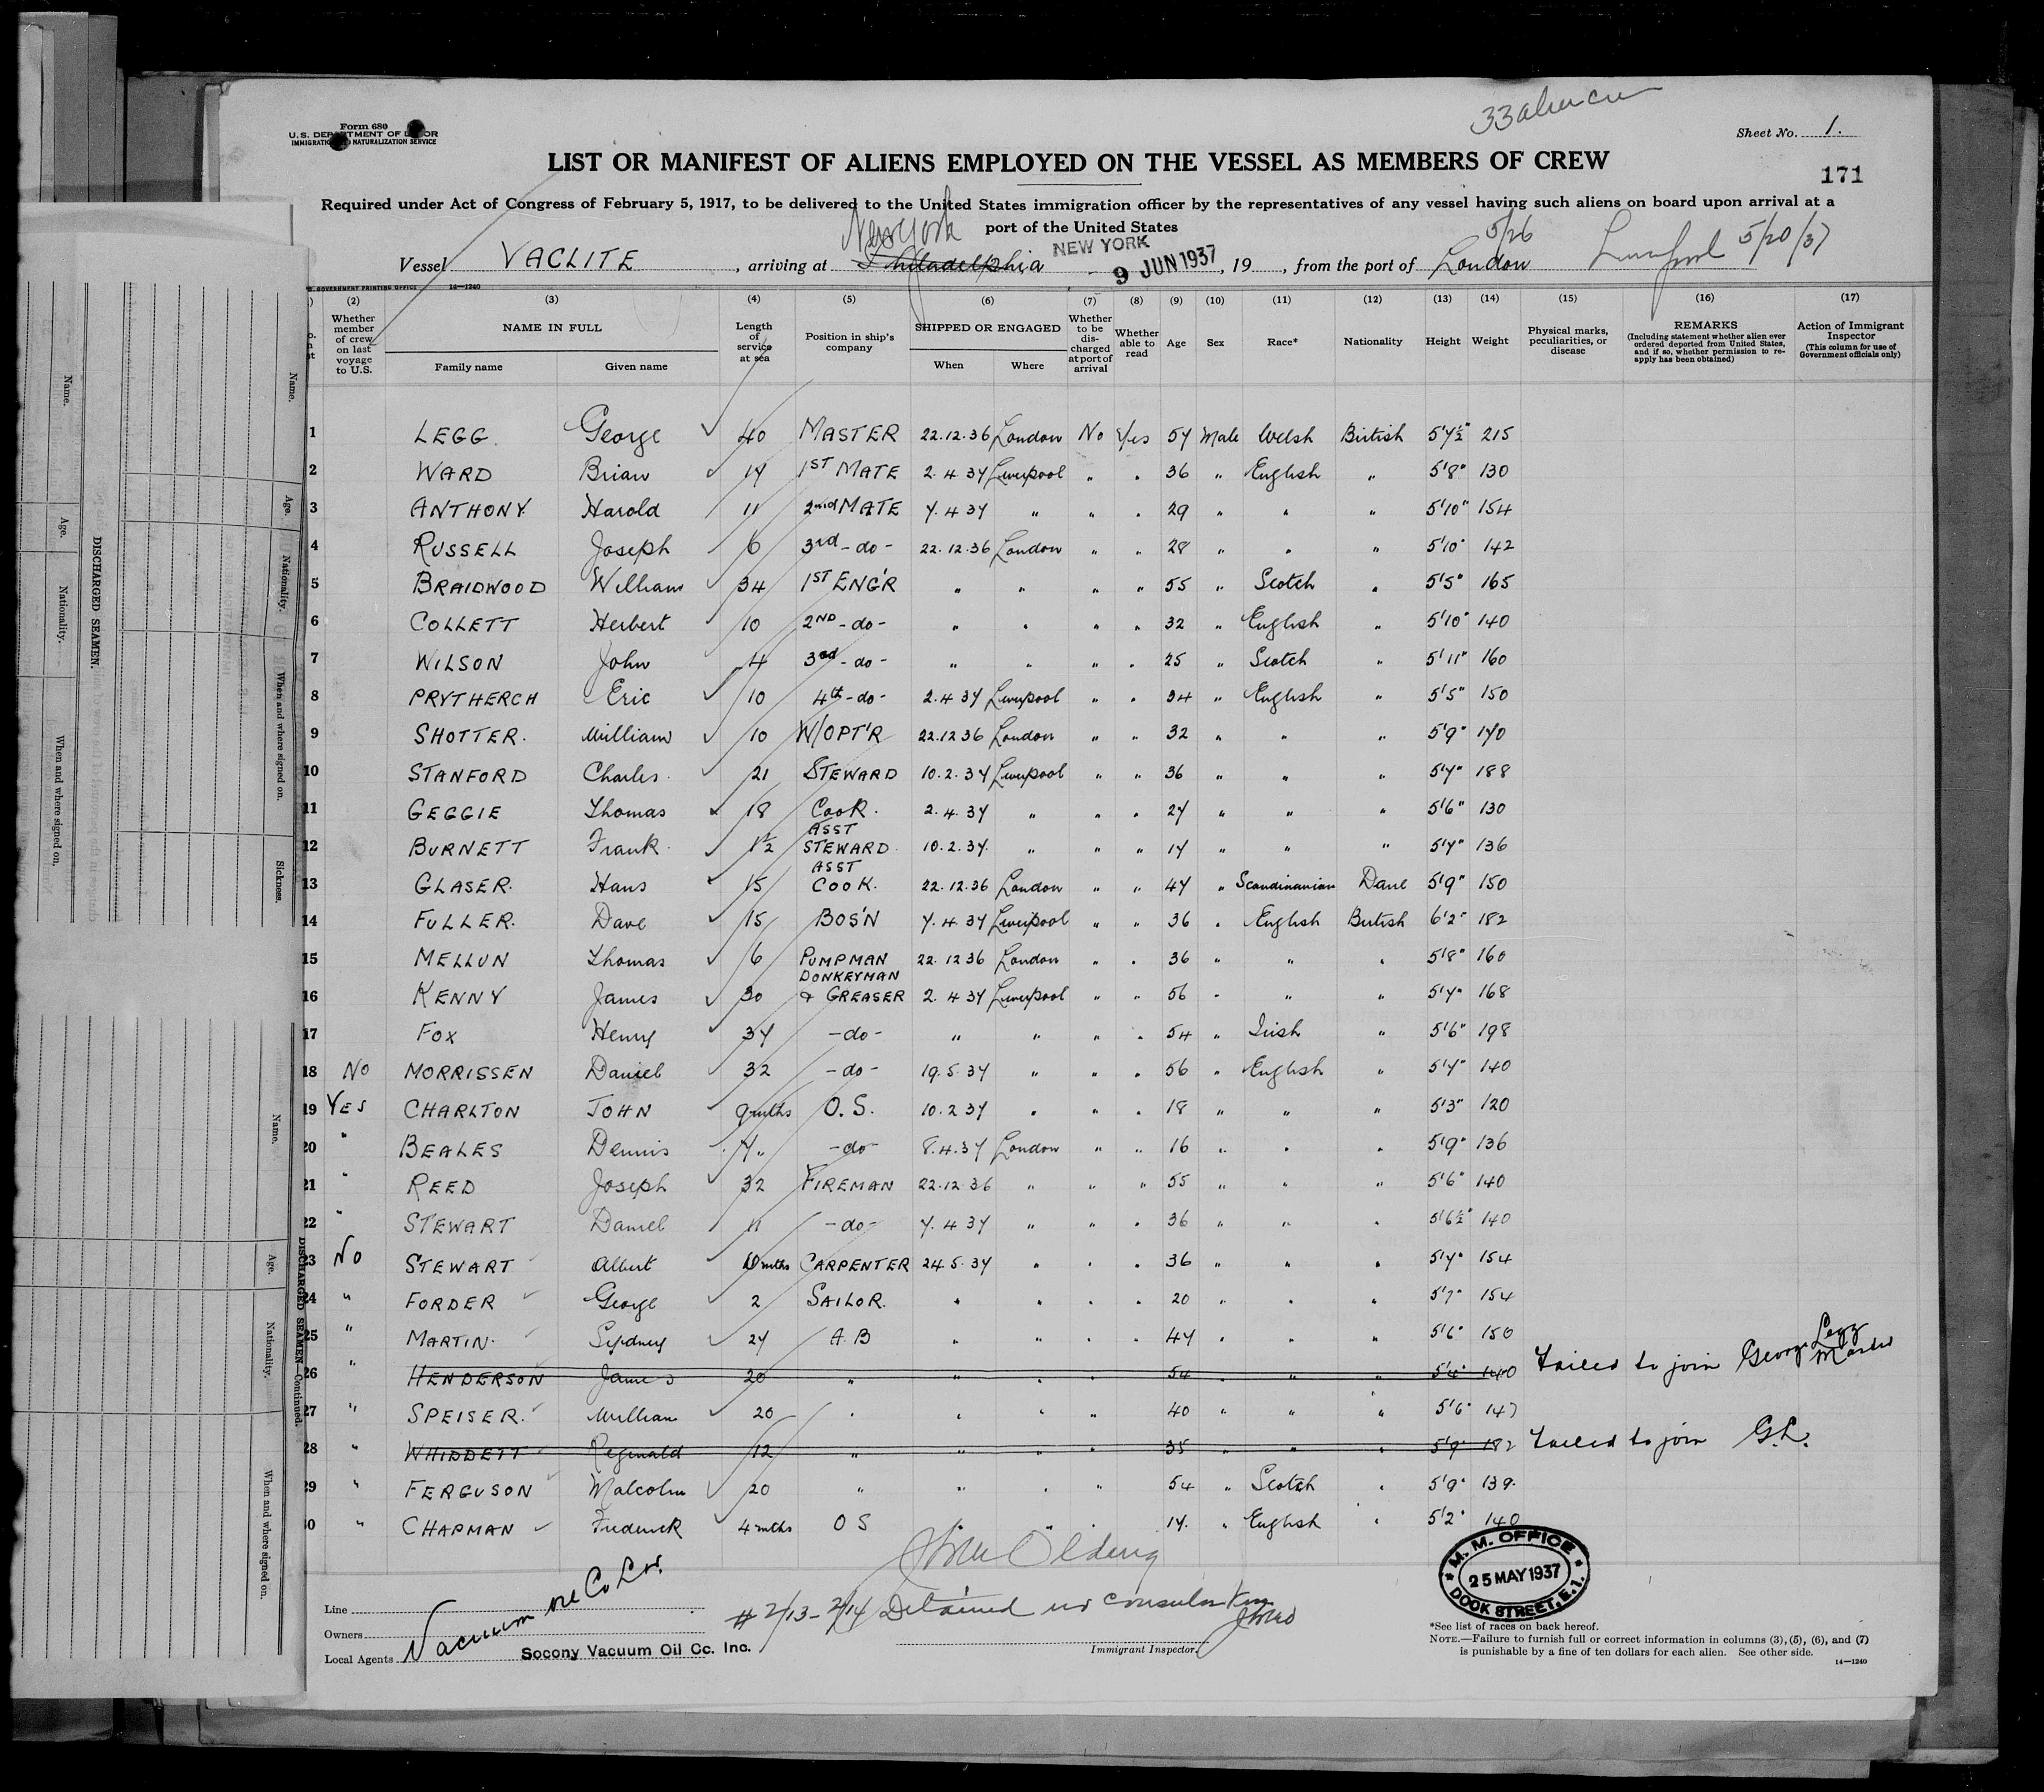 33 alien crew
Form 680
U.S. DEPARTMENT OF LABOR
IMMIGRATION & NATURALIZATION SERVICE
Sheet No. 1.
LIST OR MANIFEST OF ALIENS EMPLOYED ON THE VESSEL AS MEMBERS OF CREW
171
Required under Act of Congress of February 5, 1917, to be delivered to the United States immigration officer by the representatives of any vessel having such aliens on board upon arrival at a
port of the United States
New York NEW YORK 5/26 Liverpool 5/20/37
Vessel VACLITE, arriving at Philadelphia 9 JUN 1937, 19, from the port of London
U.S. GOVERNMENT PRINTING OFFICE 14—1240
(2) (3) (4) (5) (6) (7) (8) (9) (10) (11) (12) (13) (14) (15) (16) (17)
Whether member of crew on last voyage to U.S. NAME IN FULL Family name Given name Length of service at sea Position in ship's company SHIPPED OR ENGAGED When Where Whether to be discharged at port of arrival Whether able to read Age Sex Race* Nationality Height Weight Physical marks, peculiarities, or disease REMARKS (Including statement whether alien ever ordered deported from United States, and if so, whether permission to re-apply has been obtained) Action of Immigrant Inspector (This column for use of Government officials only)
1 LEGG. George 40 MASTER 22.12.36 London No Yes 57 Male Welsh British 5'7½" 215
2 WARD Brian 17 1ST MATE 2.4.37 Liverpool " " 36 " English " 5'8" 130
3 ANTHONY. Harold 11 2nd MATE 7.4.37 " " " 29 " " " 5'10" 154
4 RUSSELL Joseph 6 3rd -do- 22.12.36 London " " 28 " " " 5'10" 142
5 BRAIDWOOD William 34 1ST ENG'R " " " " 55 " Scotch " 5'5" 165
6 COLLETT Herbert 10 2ND -do- " " " " 32 " English " 5'10" 140
7 WILSON John 4 3rd -do- " " " " 25 " Scotch " 5'11" 160
8 PRYTHERCH Eric 10 4th -do- 2.4.37 Liverpool " " 34 " English " 5'5" 150
9 SHOTTER. William 10 W/OPT'R 22.12 36 London " " 32 " " " 5'9" 170
10 STANFORD Charles. 21 STEWARD 10.2.37 Liverpool " " 36 " " " 5'7" 188
11 GEGGIE Thomas 18 COOK. 2.4.37 " " " 27 " " " 5'6" 130
12 BURNETT Frank. 1½ ASST STEWARD. 10.2.37. " " " 17 " " " 5'7" 136
13 GLASER. Hans 15 ASST COOK. 22.12.36 London " " 47 " Scandinavian Dane 5'9" 150
14 FULLER. Dave 15 BOS'N 7.4.37 Liverpool " " 36 " English British 6'2" 182
15 MELLUN Thomas 6 PUMPMAN 22.12 36 London " " 36 " " " 5'8" 160
16 KENNY James 30 DONKEYMAN & GREASER 2.4 37 Liverpool " " 56 " " " 5'7" 168
17 FOX Henry 37 -do- " " " " 54 " Irish " 5'6" 198
18 NO MORRISSEN Daniel 32 -do- 19.5.37 " " " 56 " English " 5'7" 140
19 YES CHARLTON JOHN 9 mths O.S. 10.2 37 " " " 18 " " " 5'3" 120
20 " BEALES Dennis 7 " -do- 8.4.37 London " " 16 " " " 5'9" 136
21 " REED Joseph 32 FIREMAN 22.12.36 " " " 55 " " " 5'6" 140
22 " STEWART Daniel 11 -do- 7.4 37 " " " 36 " " " 5'6½" 140
23 NO STEWART Albert mths CARPENTER 24.5.37 " " " 36 " " " 5'7" 154
24 " FORDER George 2 SAILOR. " " " " 20 " " " 5'7" 154
25 " MARTIN. Sydney 27 A.B " " " " 47 " " " 5'6" 150
26 " HENDERSON James 20 " " " " 54 " " " 5'4" 140 Failed to join George Legg Master
27 " SPEISER. William 20 " " " " 40 " " " 5'6" 147
28 " WHIDDETT Reginald 12 " " " " 35 " " " 5'9" 182 Failed to join G.L.
29 " FERGUSON Malcolm 20 " " " " 54 " Scotch " 5'9" 139.
30 " CHAPMAN Frederick 4 mths O S " " " 17. " English " 5'2" 140
M.M. OFFICE
25 MAY 1937
DOCK STREET, E.1.
Line
Owners Vacuum Oil Co Ltd.
Local Agents Socony Vacuum Oil Co. Inc.
# 2/13 - 2/14 Detained no consular visa
Immigrant Inspector.
*See list of races on back hereof.
NOTE.—Failure to furnish full or correct information in columns (3), (5), (6), and (7)
is punishable by a fine of ten dollars for each alien. See other side.
14—1240
DISCHARGED SEAMEN.
Name.
Age.
Nationality.
When and where signed on.
Name.
Age.
Nationality.
When and where signed on.
Sickness.
DISCHARGED SEAMEN—Continued.
Name.
Age.
Nationality.
When and where signed on.